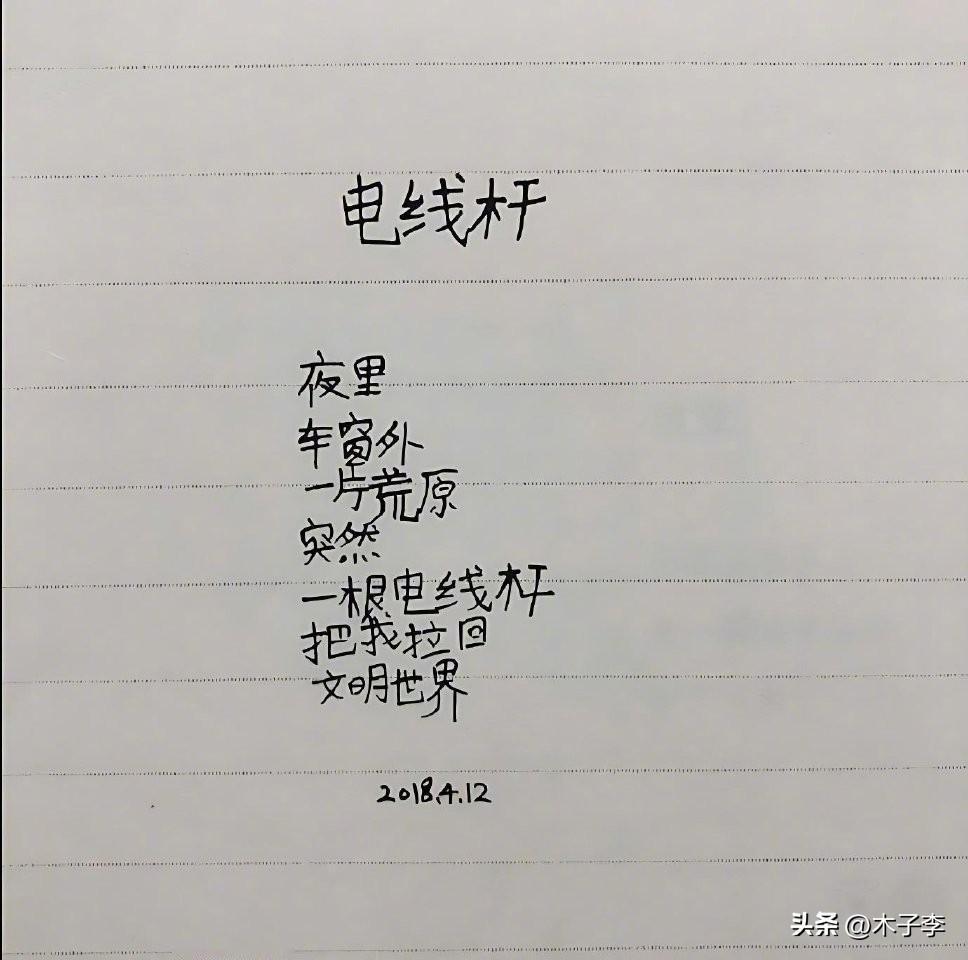 电线杆
夜里
车窗外
一片荒原
突然
一根电线杆
把我拉回
文明世界
2018.4.12
头条 @木子李